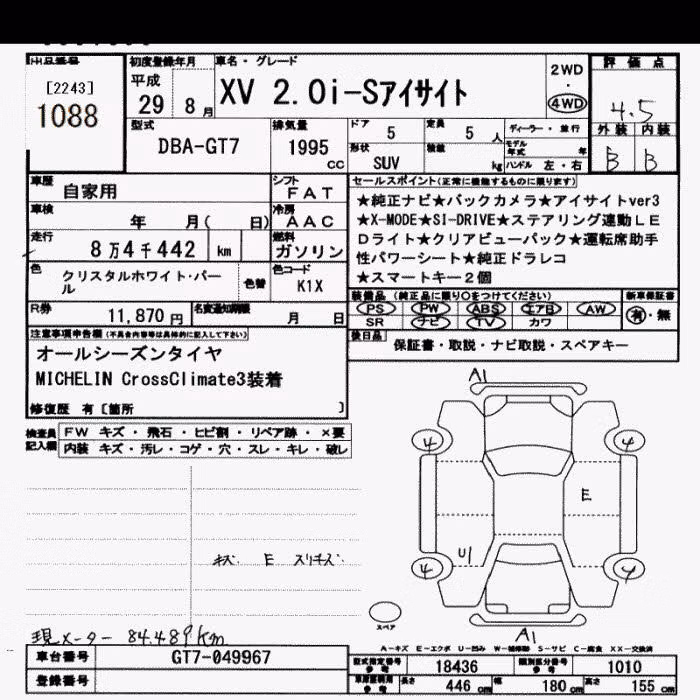 [2243]
1088
初度登録年月
平成
29 8月
車名・グレード
XV 2.0i-Sアイサイト
2WD
・
4WD
評価点
4.5
外装 内装
B B
型式
DBA-GT7
排気量
1995
cc
ドア
5
定員
5 人
形状
SUV
積載
kg
ディーラー・並行
モデル年式 年
ハンドル 左・右
車歴
自家用
シフト
FAT
車検
年 月( 日)
冷房
AAC
走行
8万4千442 km
燃料
ガソリン
色
クリスタルホワイト・パール
色替
色コード
K1X
R券
11,870 円
名変通知期限
月 日
セールスポイント(正常に機能するものに限ります)
★純正ナビ★バックカメラ★アイサイトver3
★X-MODE★SI-DRIVE★ステアリング連動LE
Dライト★クリアビューパック★運転席助手
性パワーシート★純正ドラレコ
★スマートキー2個
装備品 (純正品に限り○をつけてください)
PS PW ABS エアB AW
SR ナビ TV カワ
新車保証書
有・無
後日品
保証書・取説・ナビ取説・スペアキー
注意事項申告欄(不具合内容等は具体的に記入して下さい)
オールシーズンタイヤ
MICHELIN CrossClimate3装着
修復歴 有〔箇所 〕
検査員
記入欄
FW キズ・飛石・ヒビ割・リペア跡・×要
内装 キズ・汚レ・コゲ・穴・スレ・キレ・破レ
A1
4 4
E
U1
4 4
キズ、 E スリキズ、
スペア
A1
現メーター 84.489km
A-キズ E-エクボ U-凹み W-補修跡 S-サビ C-腐食 XX-交換済
車台番号
GT7-049967
登録番号
型式指定番号
参考
18436
類別区分番号
参考
1010
車庫証明用
参考
長さ 446 cm 幅 180 cm 高さ 155 cm